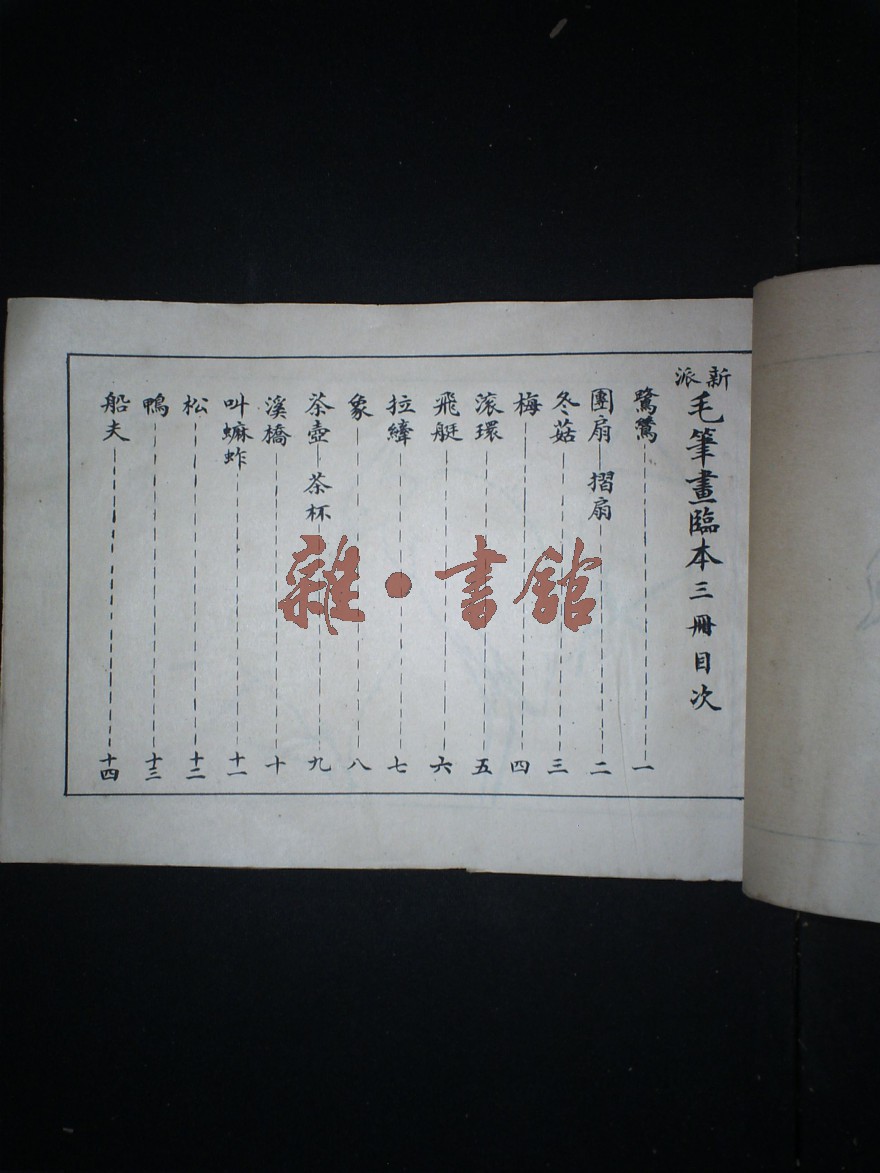 新派毛筆畫臨本三冊目次
鷺鷥 一
團扇 摺扇 二
冬菇 三
梅 四
滚環 五
飛艇 六
拉縴 七
象 八
茶壺 茶杯 九
溪橋 十
叫䗫蚱 十一
松 十二
鴨 十三
船夫 十四
雜·書館